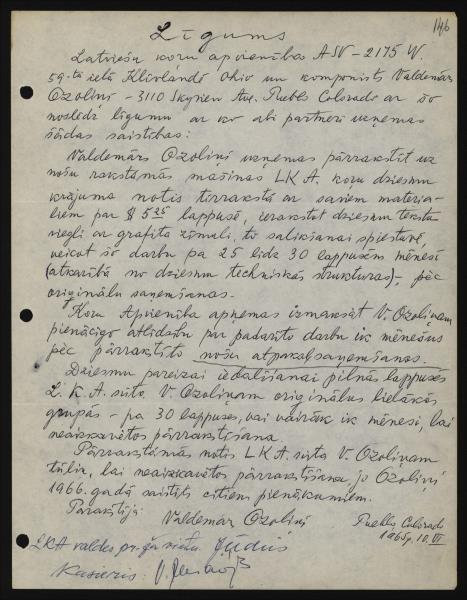 146
Līgums
Latviešu koru apvienība ASV - 2175 W.
59-tā ielā Klīvlandē Ohio un komponists Valdemārs
Ozoliņš - 3110 Skyview Ave. Pueblo Colorado ar šo
noslēdz līgumu ar ko abi partneri uzņemas
šādas saistības:
Valdemārs Ozoliņš uzņemas pārrakstīt uz
nošu rakstāmās mašīnas LKA. koru dziesmu
krājuma notis tīrrakstā ar saviem materia-
liem par $ 5.25 lappusē, ierakstot dziesmu tekstu
viegli ar grafita zīmuli, to salikšanai spiestuvē,
veicot šo darbu pa 25 līdz 30 lappusēm mēnesī
(atkarībā no dziesmu techniskās struktūras), pēc
oriģinālu saņemšanas.
Koru Apvienība apņemas izmaksāt V. Ozoliņam
pienācīgo atlīdzību par padarīto darbu ik mēnešus
pēc pārrakstīto nošu atpakaļsaņemšanas.
Dziesmu pareizai iedalīšanai pilnās lappusēs
L.K.A. sūta V. Ozoliņam oriģinālus lielākās
grupās - pa 30 lappuses, vai vairāk ik mēnesi, lai
neaizkavētos pārrakstīšana.
Pārrakstāmās notis LKA. sūta V. Ozoliņam
tūliņ, lai neaizkavētos pārrakstīšana, jo Ozoliņš
1966. gadā saistīts citiem pienākumiem.
Parakstīja:
Valdemar Ozoliņš
Pueblo, Colorado
1965 g. 10. VI
LKA valdes pr-ža vietu
Kasieris: